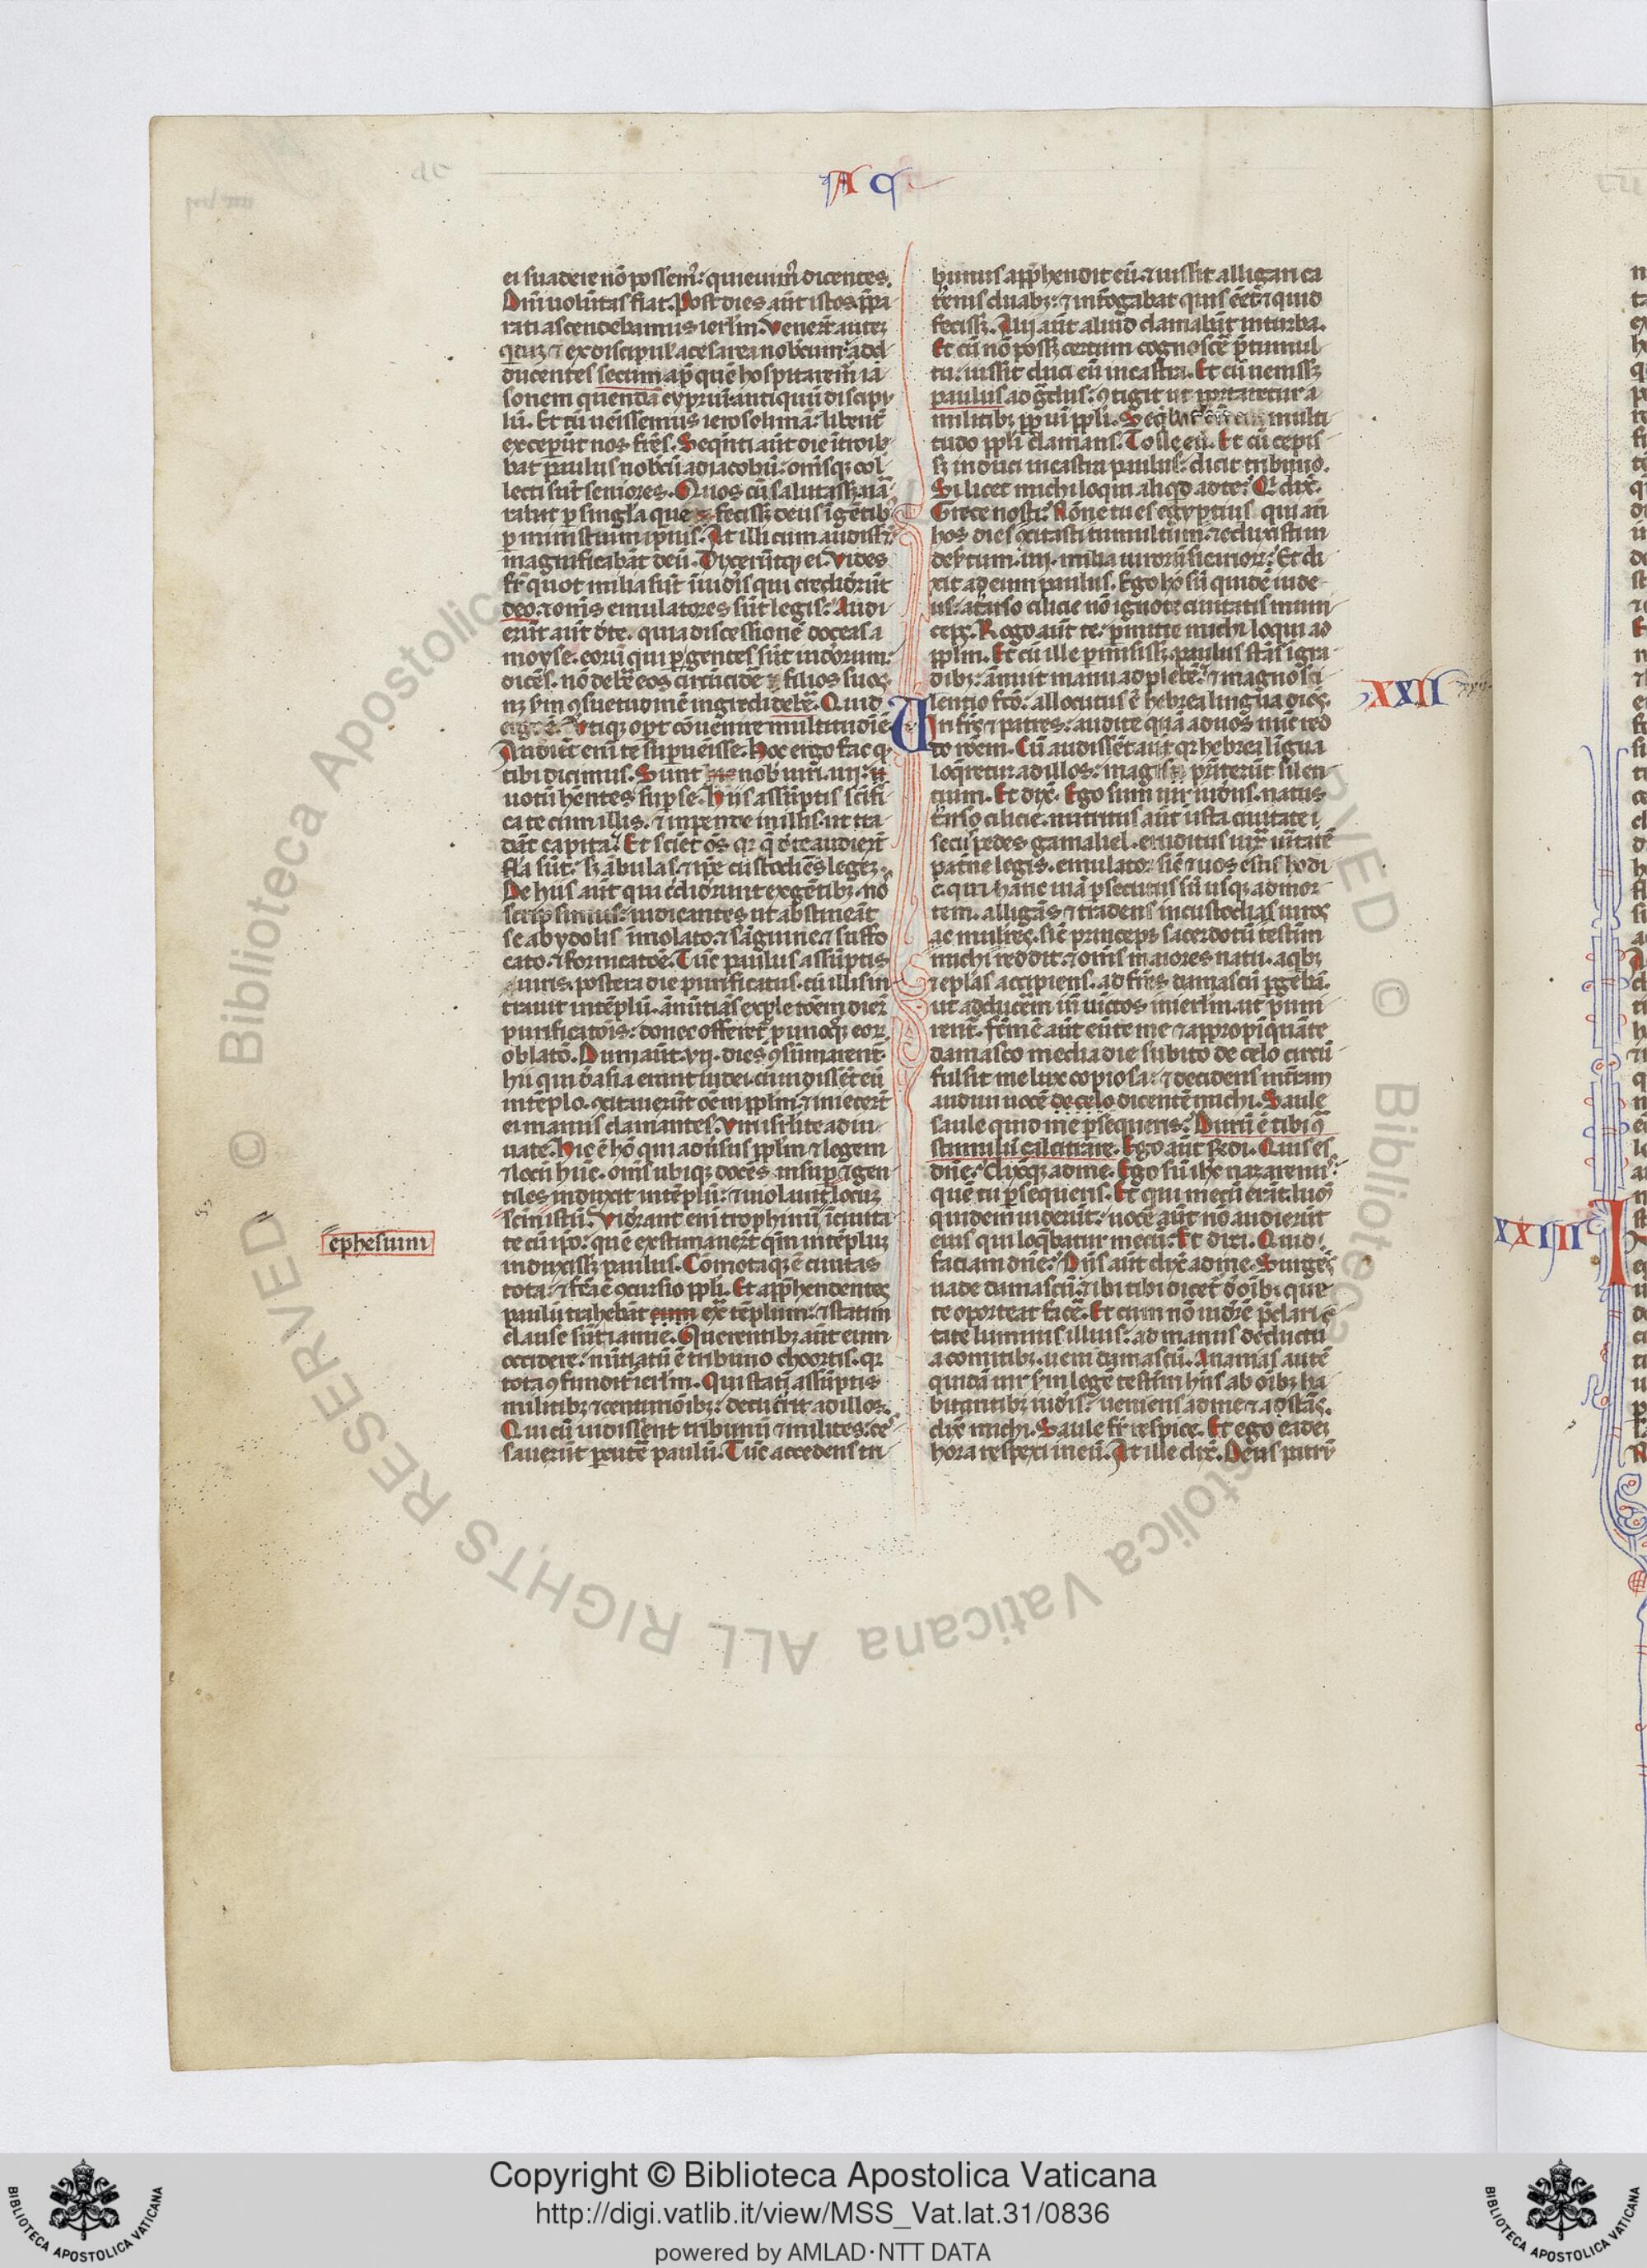 A C
ei suadere nō possem᷒: quieuim᷒ dicentes.
Dn̄i uolūtas fiat. Post dies aūt istos p̄pa
rati ascendebamus ierl̄m. Venerūt autē
ex discipul̓ a cesarea nobcum: ad
ducentes secum ap̄ quē hospitarem̄ ia
sonem quendā cypriū: antiquū discipu
lū. Et cū uēissemus ierosolimā: libent̄
exceperūt nos fr̄es. Seq̄nti aūt die ītroib
bat paulus nobcū ad iacobū: om̄sqꝫ col
lecti sūt seniores. Quos cū salutassꝫ nā
rabat ꝑ singl̓a que fecissꝫ deus ī gētibꝰ
ꝑ ministeriū ipius. At illi cum audissēt
magnificabāt deū. Dixerūtqꝫ ei. Vides
fr̄ quot milia sūt ī iudeis qui credid̓rūt
deo: ⁊ om̄s emulatores sūt legis. Audi
erūt aūt de te. quia discessionē doceas a
moyse. eorū qui ꝑ gentes sūt iudorum:
dicēs. nō deb̄e eos circūcid̓e filios suos
nꝫ sm̄ ꝯsuetudinē ingredi deb̄e. Quid
ergo ē. Vtiqꝫ oport̄ cōuenire multitudiē
Audiēt enī te supuēisse. Hoc ergo fac qđ
tibi dicimus. Sunt nob uiri .iiij.
uotū hn̄tes supr se. Hiis assūptis sc̄ifi
ca te cum illis. ⁊ inpende in illis. ut ra
dāt capita. Et sciēt ōs qꝛ q̄ de te audierūt
fl̄a sūt: sꝫ ābulas ⁊ ip̄e custodiēs legeꝫ.
De hiis aūt qui c̓did̓runt ex gētibꝫ. nō
scripsimus: iudicantes ut abstineāt
se ab ydolis īmolato. ⁊ sāguine. ⁊ suffo
cato. ⁊ fornicatōe. Tūc paulus assūptis
uiris. postera die purificatus. cū illis in
trauit in tēplū. ānūtiās expletōem dierꝫ
purificatōis: donec offerret᷒ ꝑ unoqꝫ eorꝫ
oblatō. Dum aūt .vij. dies ꝯsūmarent᷒
hii qui d̓ asia erant iudei. cum uidissēt eū
in tēplo. ꝯcitauerūt oēm ppl̄m. ⁊ iniecerūt
ei manus clamantes. Viri isrl̓ite adiu
uate. Hic ē hō qui adūsus ppl̄m ⁊ legem
⁊ locū hūc. om̄s ubiqꝫ docēs. insuꝑ ⁊ gen
tiles induxit in tēplū: ⁊ uiolauit locuꝫ
sc̄m istū. Vid̓rant enī trophimū ī ciuita
te cū ipo: quē existimauer̄t qm̄ in tēpluꝫ
induxissꝫ paulus. Cōmotaqꝫ ē ciuitas
tota: ⁊ fc̄a ē ꝯcursio ppl̓i. Et app̄hendentes
paulū trahebāt eum ex̄ tēplum: ⁊ statim
clause sūt ianue. Querentibꝫ aūt eum
occidere: nūtiatū ē tribuno choortis. qꝛ
tota ꝯfundit᷒ ierl̄m. Qui statī assūptis
militibꝫ ⁊ centurionibꝫ: decurrit ad illos.
Qui cū uidissent tribunū ⁊ milites: ce
sauerūt ꝑcut̓e paulū. Tūc accedens tri
ephesium
bunus app̄hendit eū. ⁊ iussit alligari ca
tenis duabꝫ: ⁊ int̓rogabat quis eēt ⁊ quid
fecissꝫ. Alij aūt aliud clamabāt in turba.
Et cū nō possꝫ certum cognosce p̄ tumul
tu: iussit duci eū in castra. Et cū uenissꝫ
paulus ad g̓dus: ꝯtigit ut portaretur a
militibꝫ pp̄ uī ppl̓i. Seq̄bat᷒ multi
tudo ppl̓i clamans. Tolle eū. Et cū cepis
sꝫ induci in castra paulus: dicit tribuno.
Si licet michi loqui aliqđ ad te? Q̄ dix̄.
Grece nosti? Nōne tu es egyptius qui an̄
hos dies ꝯcitasti tumultum: ⁊ eduxisti in
desertum .iiij. milia uirorū sicariorꝫ? Et di
xit ad eum paulus. Ego hō sū quidē iude
us. a tarso cilicie nō ignote ciuitatis muni
ceps. Rogo aūt te: ꝑmitte michi loqui ad
ppl̄m. Et cū ille ꝑmisissꝫ. paulus stās ī gra
dibꝫ: ānuit manu ad plebē. ⁊ magno si
lentio fc̄o: allocutus ē hebrea lingua dicēs.
Uiri fr̄es ⁊ patres: audite quā ad uos nūc red
do rōem. Cū audissēt aūt qꝛ hebrea līgua
loq̄retur ad illos: magis p̄stiterūt silen
cium. Et dix̄. Ego sum uir iudeus. natus
tarso cilicie. nutritus aūt ī ista ciuitate i
secꝰ pedes gamaliel. eruditus iuxͣ uītatē
pat̓ne legis. emulator sic̄ ⁊ uos estis hodi
e. qui hanc uiā ꝑsecutus sū usqꝫ ad mor
tem. alligās ⁊ tradens in custodias uiros
ac mulieres. sic̄ princeps sacerdotū testim̄
michi reddit. ⁊ om̄s maiores natu. a qbꝫ
⁊ epl̄as accipiens. ad fr̄es damascū ꝑgebā.
ut adducerem in̄ uictos in ierl̄m. ut puni
rent᷒. Fc̄m ē aūt eūte me ⁊ appropīquāte
damasco media die subito de celo circū
fulsit me lux copiosa: ⁊ decidens in terram
audiui uocē de celo dicentē michi. Saule
saule quid me ꝑsequeris? Durū ē tibi ꝯͣ
stimulū calcitrare. Ego aūt r̄spōdi. Quis es
dn̄e? Dixitqꝫ ad me. Ego sū ih̄c nazarenꝰ:
quē tu ꝑsequeris. Et qui mecū erāt: lum̄
quidem uiderūt: uocē aūt nō audierūt
eius qui loq̄batur mecū. Et dixi. Quid
faciam dn̄e? Dn̄s aūt dix̄ ad me. Surgēs
uade damascū: ⁊ ibi tibi dicet᷒ d̓ oībꝫ que
te oporteat face. Et cum nō uid̓re p̄ clari
tate luminis illius: ad manus deductꝰ
a comitibꝫ. ueni damascū. Ananias autē
quidā uir sm̄ legē testim̄ hn̄s ab oībꝫ ha
bitantibꝫ iud̓is: ueniens ad me ⁊ adstās.
dix̄ michi. Saule fr̄ respice. Et ego eadē
hora respexi in eū. At ille dix̄. Deus patrū
XXII
XXIII
Copyright © Biblioteca Apostolica Vaticana
http://digi.vatlib.it/view/MSS_Vat.lat.31/0836
powered by AMLAD·NTT DATA
BIBLIOTECA APOSTOLICA VATICANA
BIBLIOTECA APOSTOLICA VATICANA
© Biblioteca Apostolica Vaticana ALL RIGHTS RESERVED